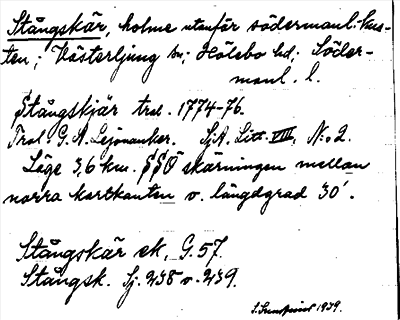 Stångskär, holme utanför södermanl. kus-
ten; Västerljung sn; Hölebo hd; Söder-
manl. l.
Stångskjär trol. 1774-76.
Trol. G. A. Lejonanker. Sj.A. Litt. VIII, N:o 2.
Läge 3,6 km. SSÖ skärningen mellan
norra kartkanten o. längdgrad 30´.
Stångskär ek, G. 57.
Stångsk. Sj. 238 o. 239.
1939.